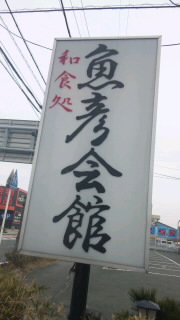 和食処
魚彦会館